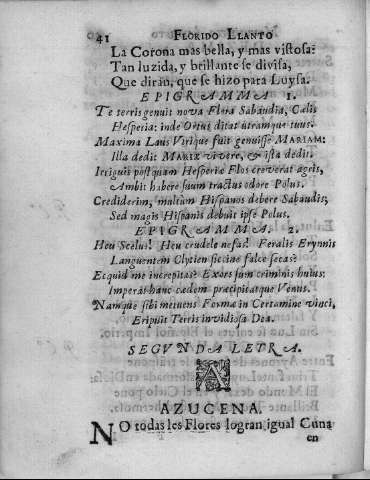 41 FLORIDO LLANTO
La Corona mas bella, y mas vistosa?
Tan luzida, y brillante se divisa,
Que diràn, que se hizo para Luysa.
EPIGRAMMA 1.
Te terris genuit nova Flora Sabaudia, Cœlis
Hesperia: inde Ortus ditat utramque tuus.
Maxima Laus Virique fuit genuisse MARIAM:
Illa dedit MARIÆ vivere, & ista dedit.
Irriguis postquam Hesperiæ Flos creverat agris,
Ambit habere suum tractus odore Polus.
Crediderim, multùm Hispanos debere Sabaudis;
Sed magis Hispanis debuit ipse Polus.
EPIGRAMMA. 2.
Heu Scelus! Heu crudele nefas! Feralis Erynnis
Languentem Clytien siccine falce secas?
Ecquid me increpitas? Exors sum criminis huius:
Imperat hanc cædem præcipitatque Venus.
Namque sibi metuens Formæ in Certamine vinci,
Eripuit Terris invidiosa Dea.
SEGUNDA LETRA.
A
AZUCENA.
NO todas les Flores logran igual Cuna
en